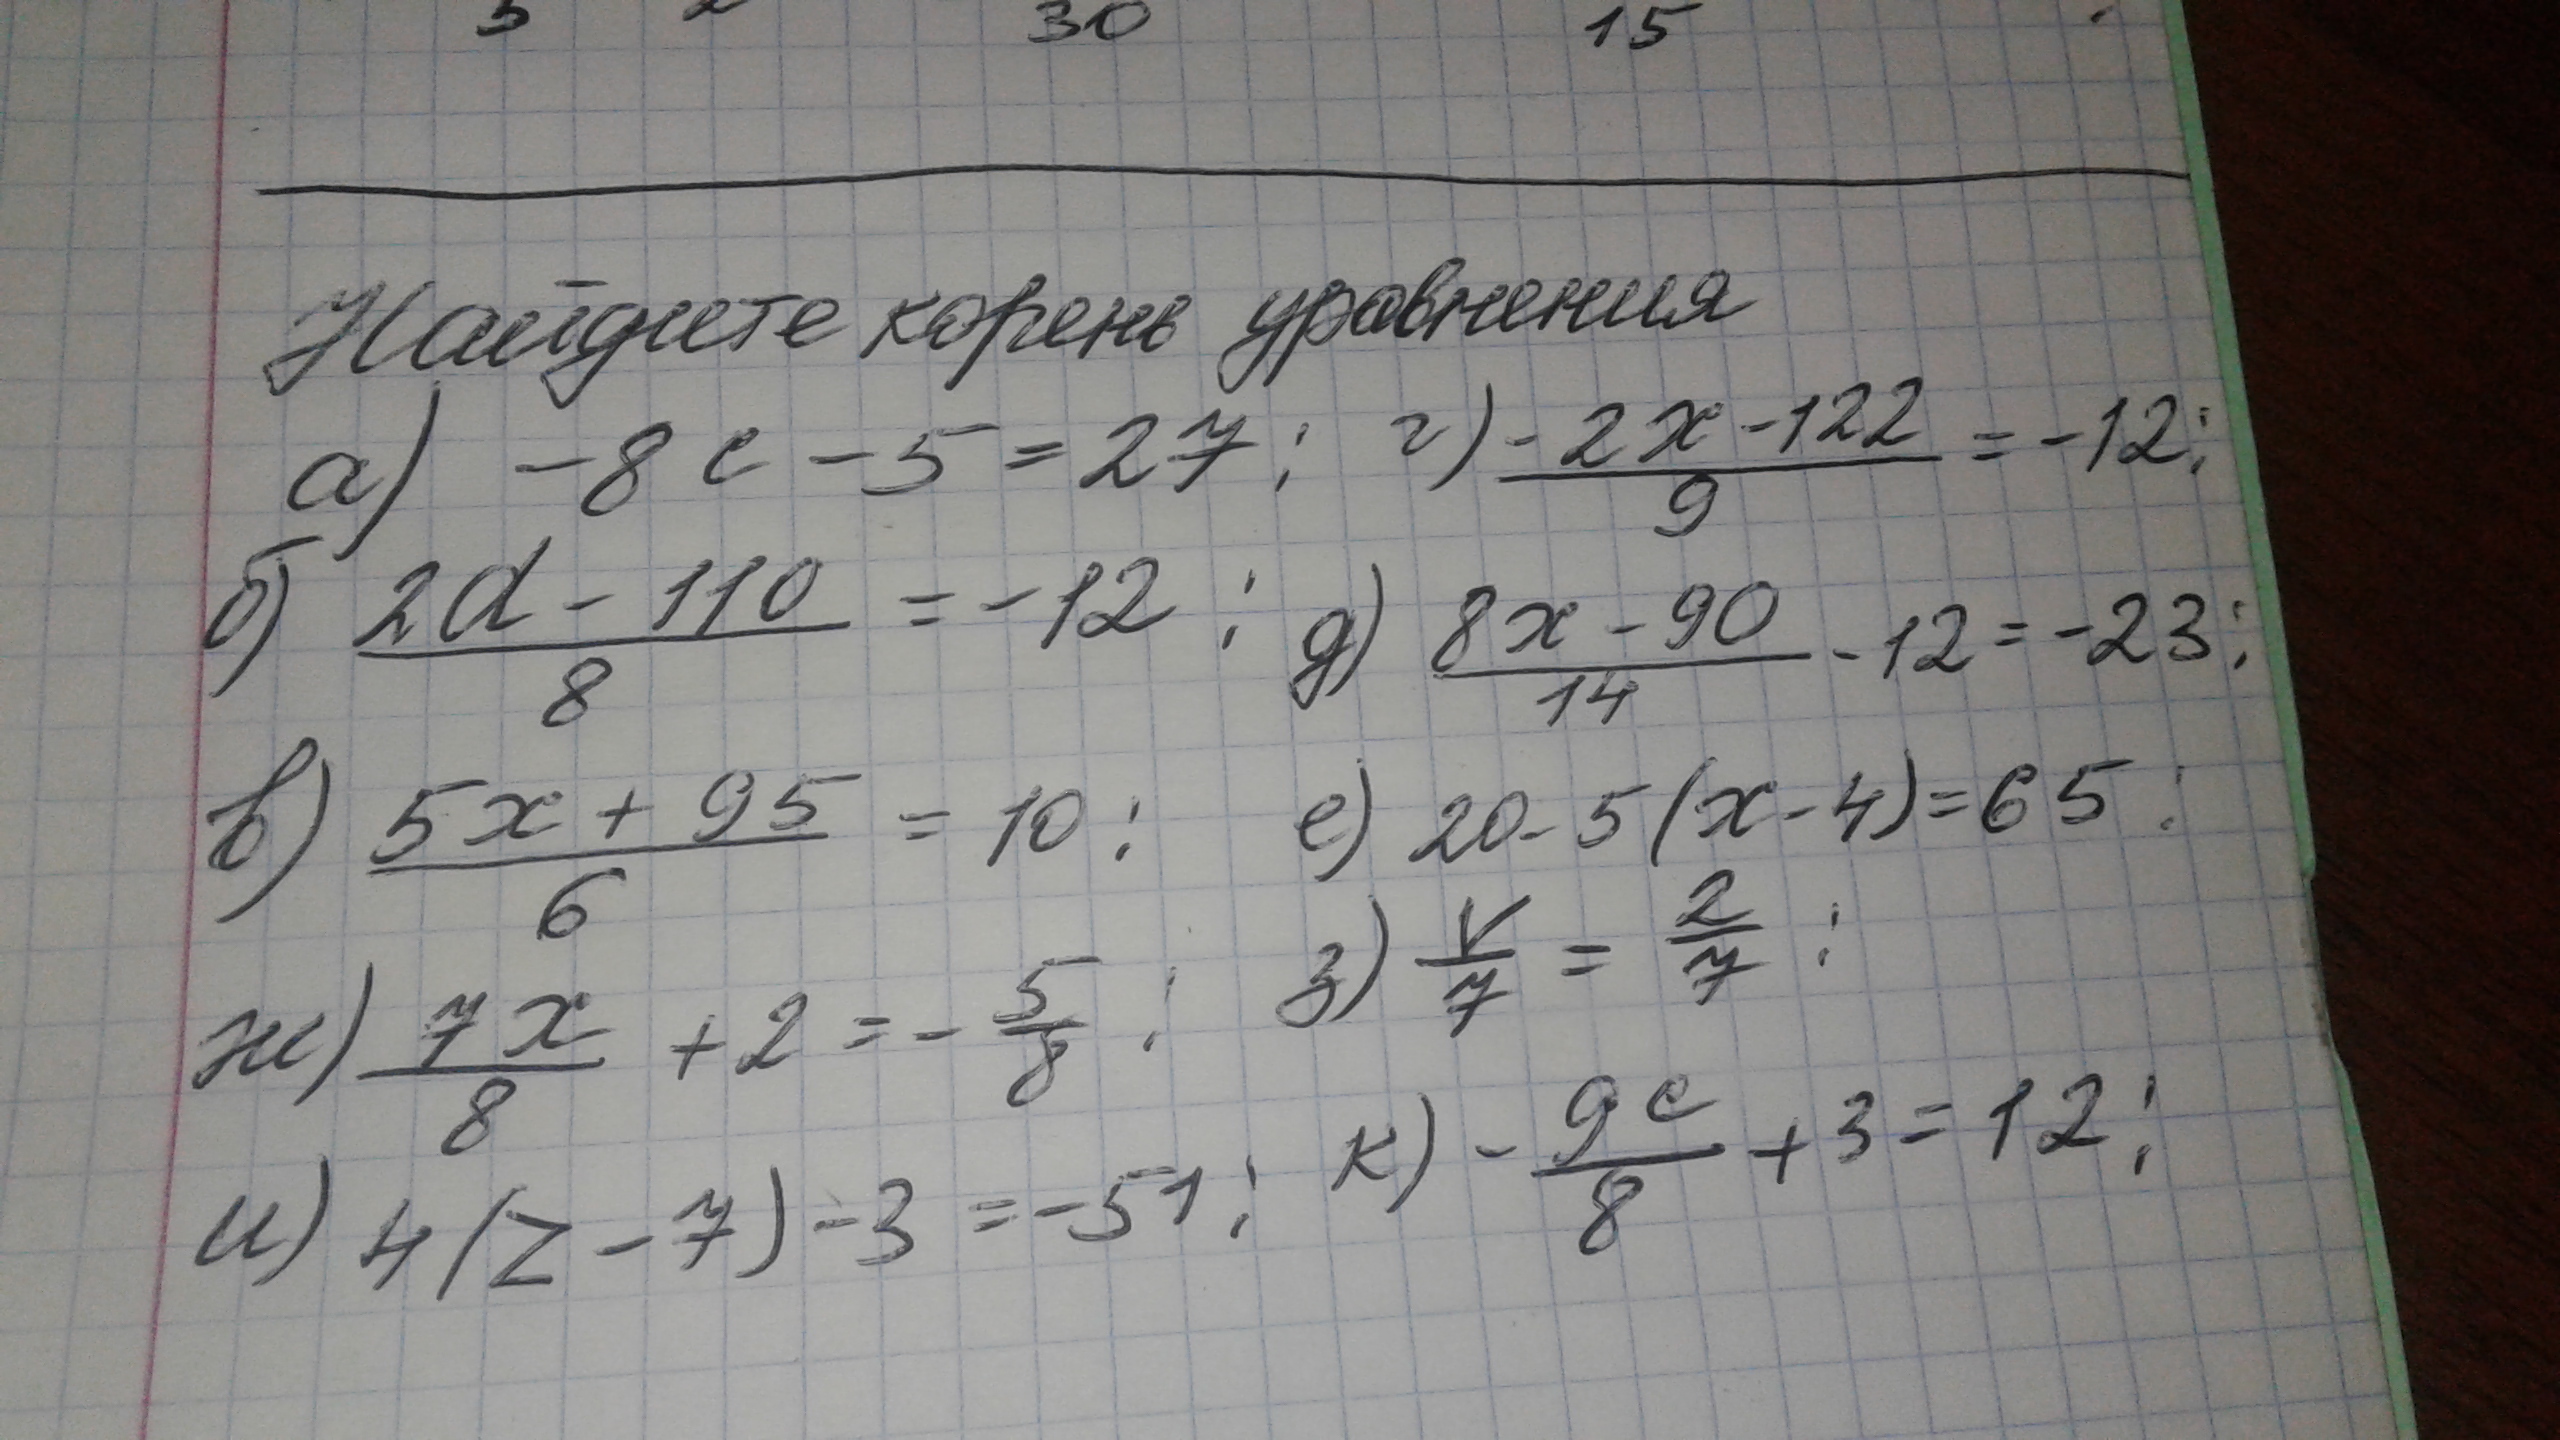 5 2 30 15
Найдите корень уравнения
а) -8c - 5 = 27; г) (-2x - 122)/9 = -12;
б) (2d - 110)/8 = -12; д) (8x - 90)/14 - 12 = -23;
в) (5x + 95)/6 = 10; е) 20 - 5(x - 4) = 65;
ж) 7x/8 + 2 = -5/8; з) V/7 = 2/7;
и) 4(z - 7) - 3 = -51; к) -9c/8 + 3 = 12;